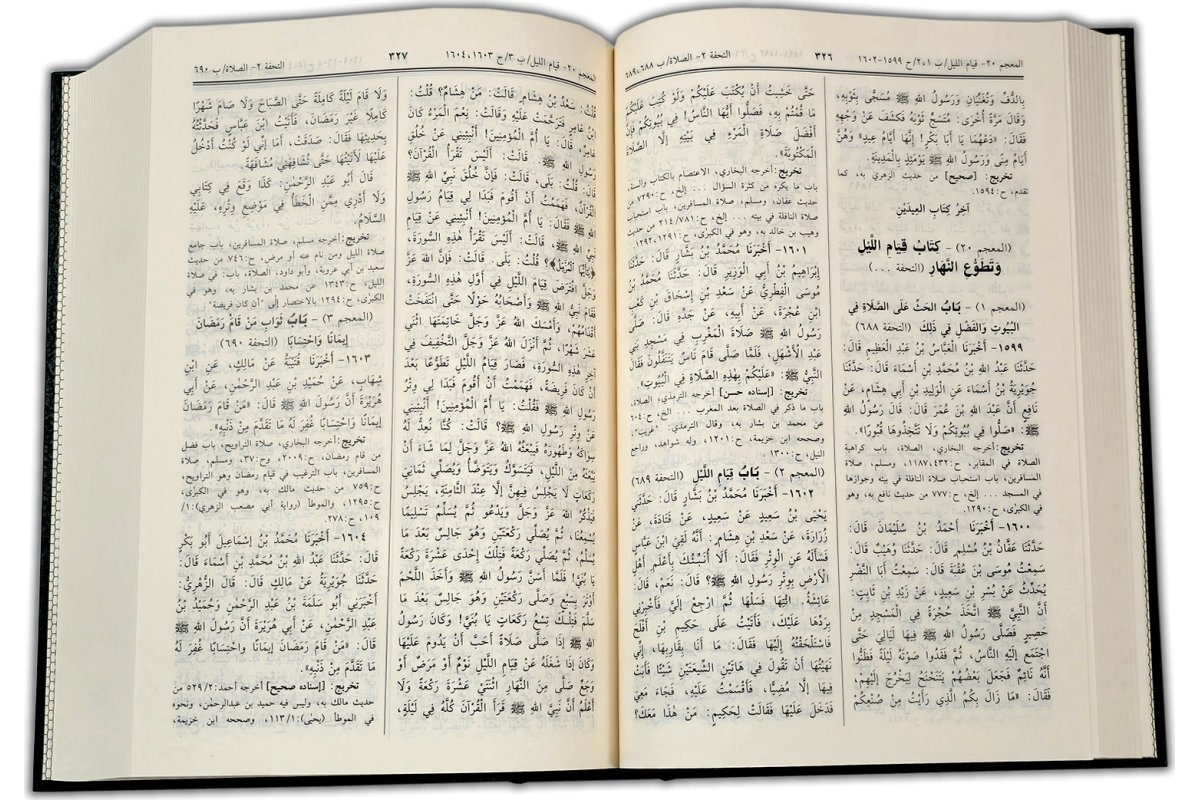 المعجم ٢٠- قيام الليل/ ب ١، ٢/ ح ١٥٩٩-١٦٠٢ ٣٢٦ التحفة ٢- الصلاة/ ب ٦٨٨، ٦٨٩
بِالدُّفِّ وَتُغَنِّيَانِ وَرَسُولُ اللهِ ﷺ مُسَجًّى بِثَوْبِهِ،
وَقَالَ مَرَّةً أُخْرَى: مُتَسَجٍّ ثَوْبَهُ فَكَشَفَ عَنْ وَجْهِهِ
فَقَالَ: «دَعْهُمَا يَا أَبَا بَكْرٍ! إِنَّهَا أَيَّامُ عِيدٍ» وَهُنَّ
أَيَّامُ مِنًى وَرَسُولُ اللهِ ﷺ يَوْمَئِذٍ بِالْمَدِينَةِ.
تخريج: [صحيح] من حديث الزهري به، كما
تقدم، ح: ١٥٩٤.
آخِرُ كِتَابِ العِيدَيْنِ
(المعجم ٢٠) - كِتَابُ قِيَامِ اللَّيْلِ
وَتَطَوُّعِ النَّهَارِ (التحفة ...)
(المعجم ١) - بَابُ الحَثِّ عَلَى الصَّلَاةِ فِي
البُيُوتِ وَالفَضْلِ فِي ذَلِكَ (التحفة ٦٨٨)
١٥٩٩- أَخْبَرَنَا الْعَبَّاسُ بْنُ عَبْدِ الْعَظِيمِ قَالَ:
حَدَّثَنَا عَبْدُ اللهِ بْنُ مُحَمَّدِ بْنِ أَسْمَاءَ قَالَ: حَدَّثَنَا
جُوَيْرِيَةُ بْنُ أَسْمَاءَ عَنِ الْوَلِيدِ بْنِ أَبِي هِشَامٍ، عَنْ
نَافِعٍ أَنَّ عَبْدَ اللهِ بْنَ عُمَرَ قَالَ: قَالَ رَسُولُ اللهِ
ﷺ: «صَلُّوا فِي بُيُوتِكُمْ وَلَا تَتَّخِذُوهَا قُبُورًا».
تخريج: أخرجه البخاري، الصلاة، باب كراهية
الصلاة في المقابر، ح: ٤٣٢، ١١٨٧، ومسلم، صلاة
المسافرين، باب استحباب صلاة النافلة في بيته وجوازها
في المسجد ... إلخ، ح: ٧٧٧ من حديث نافع به، وهو
في الكبرى، ح: ١٢٩٠.
١٦٠٠- أَخْبَرَنَا أَحْمَدُ بْنُ سُلَيْمَانَ قَالَ:
حَدَّثَنَا عَفَّانُ بْنُ مُسْلِمٍ قَالَ: حَدَّثَنَا وُهَيْبٌ قَالَ:
سَمِعْتُ مُوسَى بْنَ عُقْبَةَ قَالَ: سَمِعْتُ أَبَا النَّضْرِ
يُحَدِّثُ عَنْ بُسْرِ بْنِ سَعِيدٍ، عَنْ زَيْدِ بْنِ ثَابِتٍ:
أَنَّ النَّبِيَّ ﷺ اتَّخَذَ حُجْرَةً فِي الْمَسْجِدِ مِنْ
حَصِيرٍ فَصَلَّى رَسُولُ اللهِ ﷺ فِيهَا لَيَالِيَ حَتَّى
اجْتَمَعَ إِلَيْهِ النَّاسُ، ثُمَّ فَقَدُوا صَوْتَهُ لَيْلَةً فَظَنُّوا
أَنَّهُ نَائِمٌ فَجَعَلَ بَعْضُهُمْ يَتَنَحْنَحُ لِيَخْرُجَ إِلَيْهِمْ،
فَقَالَ: «مَا زَالَ بِكُمُ الَّذِي رَأَيْتُ مِنْ صُنْعِكُمْ
حَتَّى خَشِيتُ أَنْ يُكْتَبَ عَلَيْكُمْ وَلَوْ كُتِبَ عَلَيْكُمْ
مَا قُمْتُمْ بِهِ، فَصَلُّوا أَيُّهَا النَّاسُ! فِي بُيُوتِكُمْ فَإِنَّ
أَفْضَلَ صَلَاةِ الْمَرْءِ فِي بَيْتِهِ إِلَّا الصَّلَاةَ
الْمَكْتُوبَةَ».
تخريج: أخرجه البخاري، الاعتصام بالكتاب والسنة،
باب ما يكره من كثرة السؤال ... إلخ، ح: ٧٢٩٠ من
حديث عفان، ومسلم، صلاة المسافرين، باب استحباب
صلاة النافلة في بيته ... إلخ، ح: ٢١٤/٧٨١ من حديث
وهيب بن خالد به، وهو في الكبرى، ح: ١٢٩١، ١٢٩٢.
١٦٠١- أَخْبَرَنَا مُحَمَّدُ بْنُ بَشَّارٍ قَالَ: حَدَّثَنَا
إِبْرَاهِيمُ بْنُ أَبِي الْوَزِيرِ قَالَ: حَدَّثَنَا مُحَمَّدُ بْنُ
مُوسَى الْفِطْرِيُّ عَنْ سَعْدِ بْنِ إِسْحَاقَ بْنِ كَعْبِ
ابْنِ عُجْرَةَ، عَنْ أَبِيهِ، عَنْ جَدِّهِ قَالَ: صَلَّى
رَسُولُ اللهِ ﷺ صَلَاةَ الْمَغْرِبِ فِي مَسْجِدِ بَنِي
عَبْدِ الْأَشْهَلِ، فَلَمَّا صَلَّى قَامَ نَاسٌ يَتَنَفَّلُونَ فَقَالَ
النَّبِيُّ ﷺ: «عَلَيْكُمْ بِهَذِهِ الصَّلَاةِ فِي الْبُيُوتِ».
تخريج: [إسناده حسن] أخرجه الترمذي، الصلاة،
باب ما ذكر في الصلاة بعد المغرب ... الخ، ح: ٦٠٤
عن محمد بن بشار به، وقال الترمذي: "غريب"،
وصححه ابن خزيمة، ح: ١٢٠١، وله شواهد، وراجع
النيل، ح: ١٣٠٠.
(المعجم ٢) - بَابُ قِيَامِ اللَّيْلِ (التحفة ٦٨٩)
١٦٠٢- أَخْبَرَنَا مُحَمَّدُ بْنُ بَشَّارٍ قَالَ: حَدَّثَنِي
يَحْيَى بْنُ سَعِيدٍ عَنْ سَعِيدٍ، عَنْ قَتَادَةَ، عَنْ
زُرَارَةَ، عَنْ سَعْدِ بْنِ هِشَامٍ: أَنَّهُ لَقِيَ ابْنَ عَبَّاسٍ
فَسَأَلَهُ عَنِ الْوَتْرِ فَقَالَ: أَلَا أُنَبِّئُكَ بِأَعْلَمِ أَهْلِ
الْأَرْضِ بِوِتْرِ رَسُولِ اللهِ ﷺ؟ قَالَ: نَعَمْ، قَالَ:
عَائِشَةُ. ائْتِهَا فَسَلْهَا ثُمَّ ارْجِعْ إِلَيَّ فَأَخْبِرْنِي
بِرَدِّهَا عَلَيْكَ، فَأَتَيْتُ عَلَى حَكِيمِ بْنِ أَفْلَحَ
فَاسْتَلْحَقْتُهُ إِلَيْهَا فَقَالَ: مَا أَنَا بِقَارِبِهَا، إِنِّي
نَهَيْتُهَا أَنْ تَقُولَ فِي هَاتَيْنِ الشِّيعَتَيْنِ شَيْئًا فَأَبَتْ
فِيهَا إِلَّا مُضِيًّا، فَأَقْسَمْتُ عَلَيْهِ، فَجَاءَ مَعِي
فَدَخَلَ عَلَيْهَا فَقَالَتْ لِحَكِيمٍ: مَنْ هَذَا مَعَكَ؟
المعجم ٢٠- قيام الليل/ ب ٣/ ح ١٦٠٣، ١٦٠٤ ٣٢٧ التحفة ٢- الصلاة/ ب ٦٩٠
قُلْتُ: سَعْدُ بْنُ هِشَامٍ، قَالَتْ: مَنْ هِشَامٌ؟ قُلْتُ:
ابْنُ عَامِرٍ فَتَرَحَّمَتْ عَلَيْهِ وَقَالَتْ: نِعْمَ الْمَرْءُ كَانَ
عَامِرٌ، قَالَ: يَا أُمَّ الْمُؤْمِنِينَ! أَنْبِئِينِي عَنْ خُلُقِ
رَسُولِ اللهِ ﷺ. قَالَتْ: أَلَيْسَ تَقْرَأُ الْقُرْآنَ؟
قَالَ: قُلْتُ: بَلَى، قَالَتْ: فَإِنَّ خُلُقَ نَبِيِّ اللهِ ﷺ
الْقُرْآنُ، فَهَمَمْتُ أَنْ أَقُومَ فَبَدَا لِي قِيَامُ رَسُولِ
اللهِ ﷺ فَقَالَ: يَا أُمَّ الْمُؤْمِنِينَ! أَنْبِئِينِي عَنْ قِيَامِ
نَبِيِّ اللهِ ﷺ. قَالَتْ: أَلَيْسَ تَقْرَأُ هَذِهِ السُّورَةَ،
﴿يَٰٓأَيُّهَا ٱلْمُزَّمِّلُ﴾؟ قُلْتُ: بَلَى، قَالَتْ: فَإِنَّ اللهَ عَزَّ
وَجَلَّ افْتَرَضَ قِيَامَ اللَّيْلِ فِي أَوَّلِ هَذِهِ السُّورَةِ،
فَقَامَ نَبِيُّ اللهِ ﷺ وَأَصْحَابُهُ حَوْلًا حَتَّى انْتَفَخَتْ
أَقْدَامُهُمْ، وَأَمْسَكَ اللهُ عَزَّ وَجَلَّ خَاتِمَتَهَا اثْنَيْ
عَشَرَ شَهْرًا، ثُمَّ أَنْزَلَ اللهُ عَزَّ وَجَلَّ التَّخْفِيفَ فِي
آخِرِ هَذِهِ السُّورَةِ، فَصَارَ قِيَامُ اللَّيْلِ تَطَوُّعًا بَعْدَ
أَنْ كَانَ فَرِيضَةً، فَهَمَمْتُ أَنْ أَقُومَ فَبَدَا لِي وِتْرُ
رَسُولِ اللهِ ﷺ فَقُلْتُ: يَا أُمَّ الْمُؤْمِنِينَ! أَنْبِئِينِي
عَنْ وِتْرِ رَسُولِ اللهِ ﷺ؟ قَالَتْ: كُنَّا نُعِدُّ لَهُ
سِوَاكَهُ وَطَهُورَهُ فَيَبْعَثُهُ اللهُ عَزَّ وَجَلَّ لِمَا شَاءَ أَنْ
يَبْعَثَهُ مِنَ اللَّيْلِ، فَيَتَسَوَّكُ وَيَتَوَضَّأُ وَيُصَلِّي ثَمَانِيَ
رَكَعَاتٍ لَا يَجْلِسُ فِيهِنَّ إِلَّا عِنْدَ الثَّامِنَةِ، يَجْلِسُ
فَيَذْكُرُ اللهَ عَزَّ وَجَلَّ وَيَدْعُو ثُمَّ يُسَلِّمُ تَسْلِيمًا
يُسْمِعُنَا، ثُمَّ يُصَلِّي رَكْعَتَيْنِ وَهُوَ جَالِسٌ بَعْدَ مَا
يُسَلِّمُ، ثُمَّ يُصَلِّي رَكْعَةً فَتِلْكَ إِحْدَى عَشْرَةَ رَكْعَةً
يَا بُنَيَّ! فَلَمَّا أَسَنَّ رَسُولُ اللهِ ﷺ وَأَخَذَ اللَّحْمَ
أَوْتَرَ بِسَبْعٍ وَصَلَّى رَكْعَتَيْنِ وَهُوَ جَالِسٌ بَعْدَ مَا
سَلَّمَ فَتِلْكَ تِسْعُ رَكَعَاتٍ يَا بُنَيَّ! وَكَانَ رَسُولُ
اللهِ ﷺ إِذَا صَلَّى صَلَاةً أَحَبَّ أَنْ يَدُومَ عَلَيْهَا
وَكَانَ إِذَا شَغَلَهُ عَنْ قِيَامِ اللَّيْلِ نَوْمٌ أَوْ مَرَضٌ أَوْ
وَجَعٌ صَلَّى مِنَ النَّهَارِ اثْنَتَيْ عَشْرَةَ رَكْعَةً وَلَا
أَعْلَمُ أَنَّ نَبِيَّ اللهِ ﷺ قَرَأَ الْقُرْآنَ كُلَّهُ فِي لَيْلَةٍ،
وَلَا قَامَ لَيْلَةً كَامِلَةً حَتَّى الصَّبَاحَ وَلَا صَامَ شَهْرًا
كَامِلًا غَيْرَ رَمَضَانَ، فَأَتَيْتُ ابْنَ عَبَّاسٍ فَحَدَّثْتُهُ
بِحَدِيثِهَا فَقَالَ: صَدَقَتْ، أَمَا إِنِّي لَوْ كُنْتُ أَدْخُلُ
عَلَيْهَا لَأَتَيْتُهَا حَتَّى تُشَافِهَنِي مُشَافَهَةً.
قَالَ أَبُو عَبْدِ الرَّحْمَنِ: كَذَا وَقَعَ فِي كِتَابِي
وَلَا أَدْرِي مِمَّنِ الْخَطَأُ فِي مَوْضِعِ وِتْرِهِ، عَلَيْهِ
السَّلَامُ.
تخريج: أخرجه مسلم، صلاة المسافرين، باب جامع
صلاة الليل ومن نام عنه أو مرض، ح: ٧٤٦ من حديث
سعيد بن أبي عروبة، وأبو داود، الصلاة، باب: في صلاة
الليل، ح: ١٣٤٣ عن محمد بن بشار به، وهو في
الكبرى، ح: ١٢٩٤ بالاختصار إلى "أن كان فريضة".
(المعجم ٣) - بَابُ ثَوَابِ مَنْ قَامَ رَمَضَانَ
إِيمَانًا وَاحْتِسَابًا (التحفة ٦٩٠)
١٦٠٣- أَخْبَرَنَا قُتَيْبَةُ عَنْ مَالِكٍ، عَنِ ابْنِ
شِهَابٍ، عَنْ حُمَيْدِ بْنِ عَبْدِ الرَّحْمَنِ، عَنْ أَبِي
هُرَيْرَةَ أَنَّ رَسُولَ اللهِ ﷺ قَالَ: «مَنْ قَامَ رَمَضَانَ
إِيمَانًا وَاحْتِسَابًا غُفِرَ لَهُ مَا تَقَدَّمَ مِنْ ذَنْبِهِ».
تخريج: أخرجه البخاري، صلاة التراويح، باب فضل
من قام رمضان، ح: ٢٠٠٩، وح: ٣٧، ومسلم، صلاة
المسافرين، باب الترغيب في قيام رمضان وهو التراويح،
ح: ٧٥٩ من حديث مالك به، وهو في الكبرى،
ح: ١٢٩٥، والموطأ (رواية أبي مصعب الزهري): ١/
١٠٩، ح: ٢٧٨.
١٦٠٤- أَخْبَرَنَا مُحَمَّدُ بْنُ إِسْمَاعِيلَ أَبُو بَكْرٍ
قَالَ: حَدَّثَنَا عَبْدُ اللهِ بْنُ مُحَمَّدِ بْنِ أَسْمَاءَ قَالَ:
حَدَّثَنَا جُوَيْرِيَةُ عَنْ مَالِكٍ قَالَ: قَالَ الزُّهْرِيُّ:
أَخْبَرَنِي أَبُو سَلَمَةَ بْنُ عَبْدِ الرَّحْمَنِ وَحُمَيْدُ بْنُ
عَبْدِ الرَّحْمَنِ، عَنْ أَبِي هُرَيْرَةَ أَنَّ رَسُولَ اللهِ ﷺ
قَالَ: «مَنْ قَامَ رَمَضَانَ إِيمَانًا وَاحْتِسَابًا غُفِرَ لَهُ
مَا تَقَدَّمَ مِنْ ذَنْبِهِ».
تخريج: [إسناده صحيح] أخرجه أحمد: ٢/ ٥٢٩ من
حديث مالك به، وليس فيه حميد بن عبدالرحمن، ونحوه
في الموطأ (يحيى): ١/ ١١٣، وصححه ابن خزيمة،